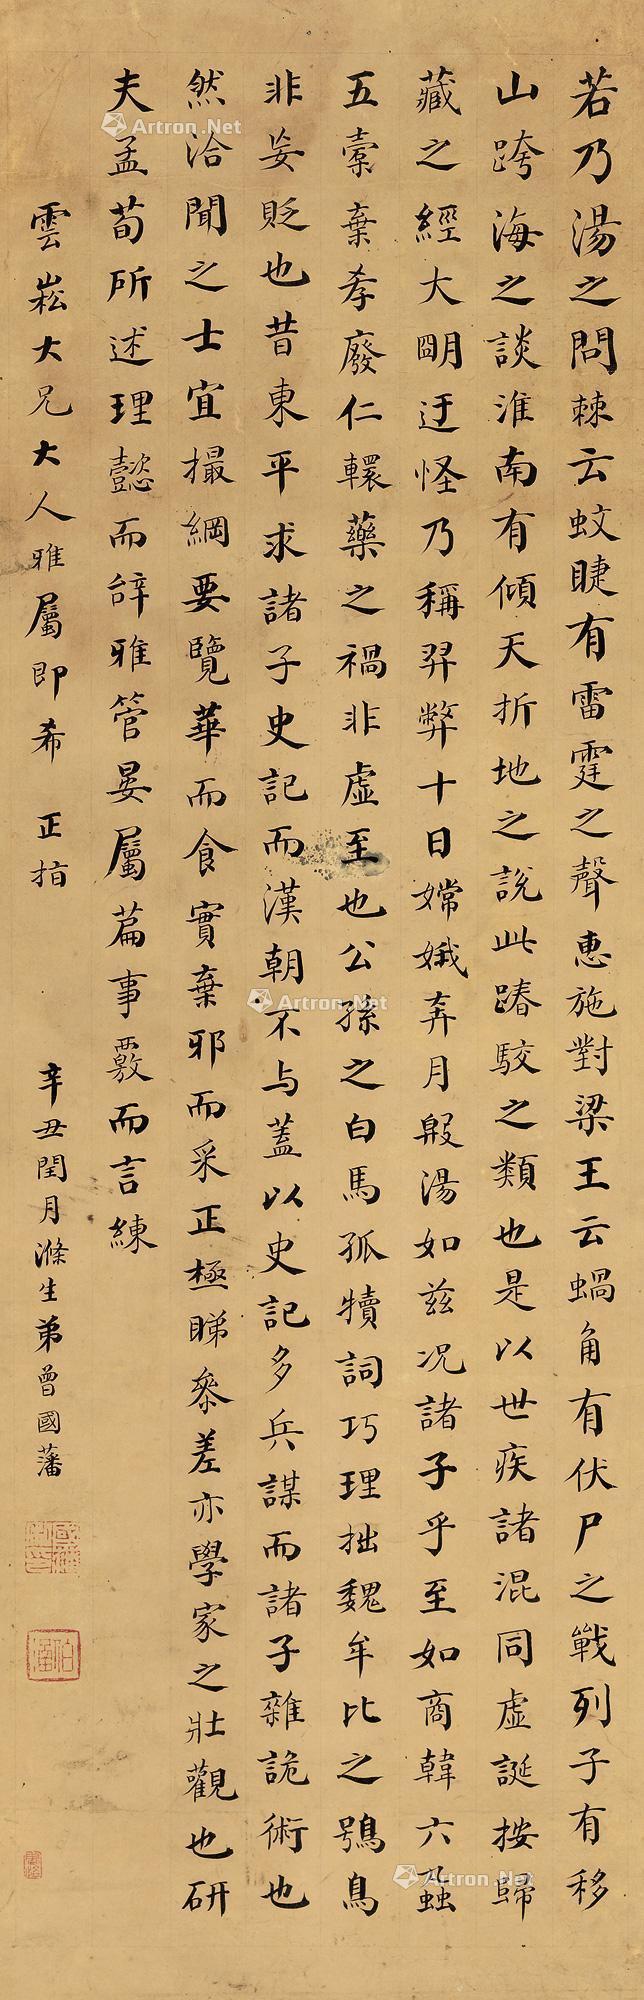 若乃湯之問棘云蚊睫有雷霆之聲惠施對梁王云蝸角有伏尸之戰列子有移
山跨海之談淮南有傾天折地之說此踳駮之類也是以世疾諸混同虛誕按歸
藏之經大朙迂怪乃稱羿弊十日嫦娥奔月殷湯如茲况諸子乎至如商韓六蝨
五蠹棄孝廢仁轘藥之禍非虛至也公孫之白馬孤犢詞巧理拙魏牟比之鴞鳥
非妄貶也昔東平求諸子史記而漢朝不与蓋以史記多兵謀而諸子雜詭術也
然洽聞之士宜撮綱要覽華而食實棄邪而采正極睇參差亦學家之壯觀也研
夫孟荀所述理懿而辭雅管晏屬篇事覈而言練
雲崧大兄大人雅屬即希 正指
辛丑閏月滌生弟曾國藩
Artron.Net
Artron.Net
Artron.Net